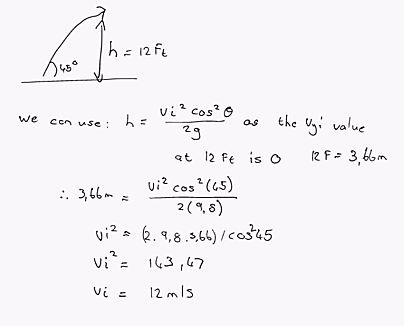 h = 12 Ft
45°
we can use: h = Vi² cos²θ / 2g as the Vyi value
at 12 Ft is 0 12F = 3,66m
∴ 3,66m = Vi² cos²(45) / 2(9,8)
Vi² = (2.9,8.3,66)/cos²45
Vi² = 143,47
Vi = 12 m/s